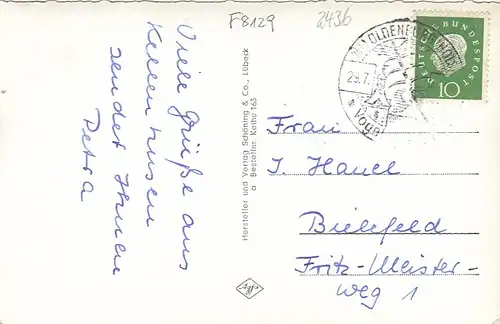 F8129
2436
Viele Grüße aus
Kellenhusen
sendet Ihnen
Petra
Hersteller und Verlag Schöning & Co., Lübeck
a Bestellnr. Kethu 163
Agfa
DEUTSCHE BUNDESPOST
10
OLDENBURG
29.7.
Frau
I. Hauel
Bielefeld
Fritz-Meister-
weg 1